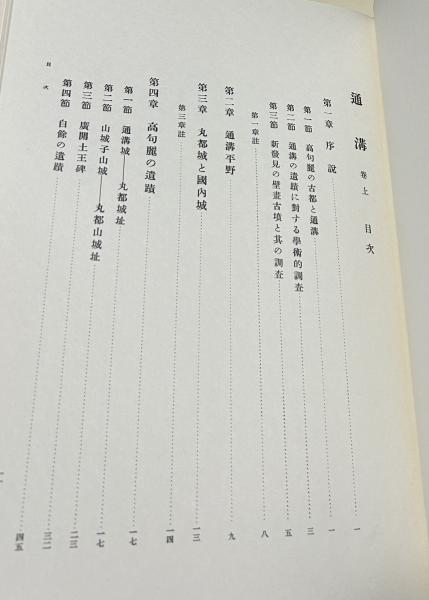 通溝 卷上 目次
第一章 序説 一
第一節 高句麗の古都と通溝 一
第二節 通溝の遺蹟に對する學術的調査 三
第三節 新發見の壁畫古墳と其の調査 五
第一章註 八
第二章 通溝平野 九
第三章 丸都城と國內城 一三
第三章註 一四
第四章 高句麗の遺蹟 一七
第一節 通溝城——丸都城址 一七
第二節 山城子山城——丸都山城址 二三
第三節 廣開土王碑 三二
第四節 自餘の遺蹟 四五
目次